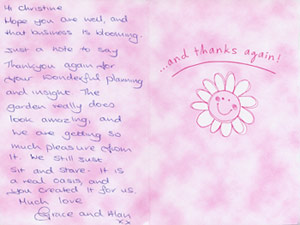 Hi Christine
Hope you are well, and
that business is blooming.
Just a note to say
Thankyou again for
your wonderful planning
and insight. The
garden really does
look amazing, and
we are getting so
much pleasure from
it. We still just
sit and stare. It is
a real oasis, and
you created it for us.
Much love
Grace and Alan
xx
...and thanks again!